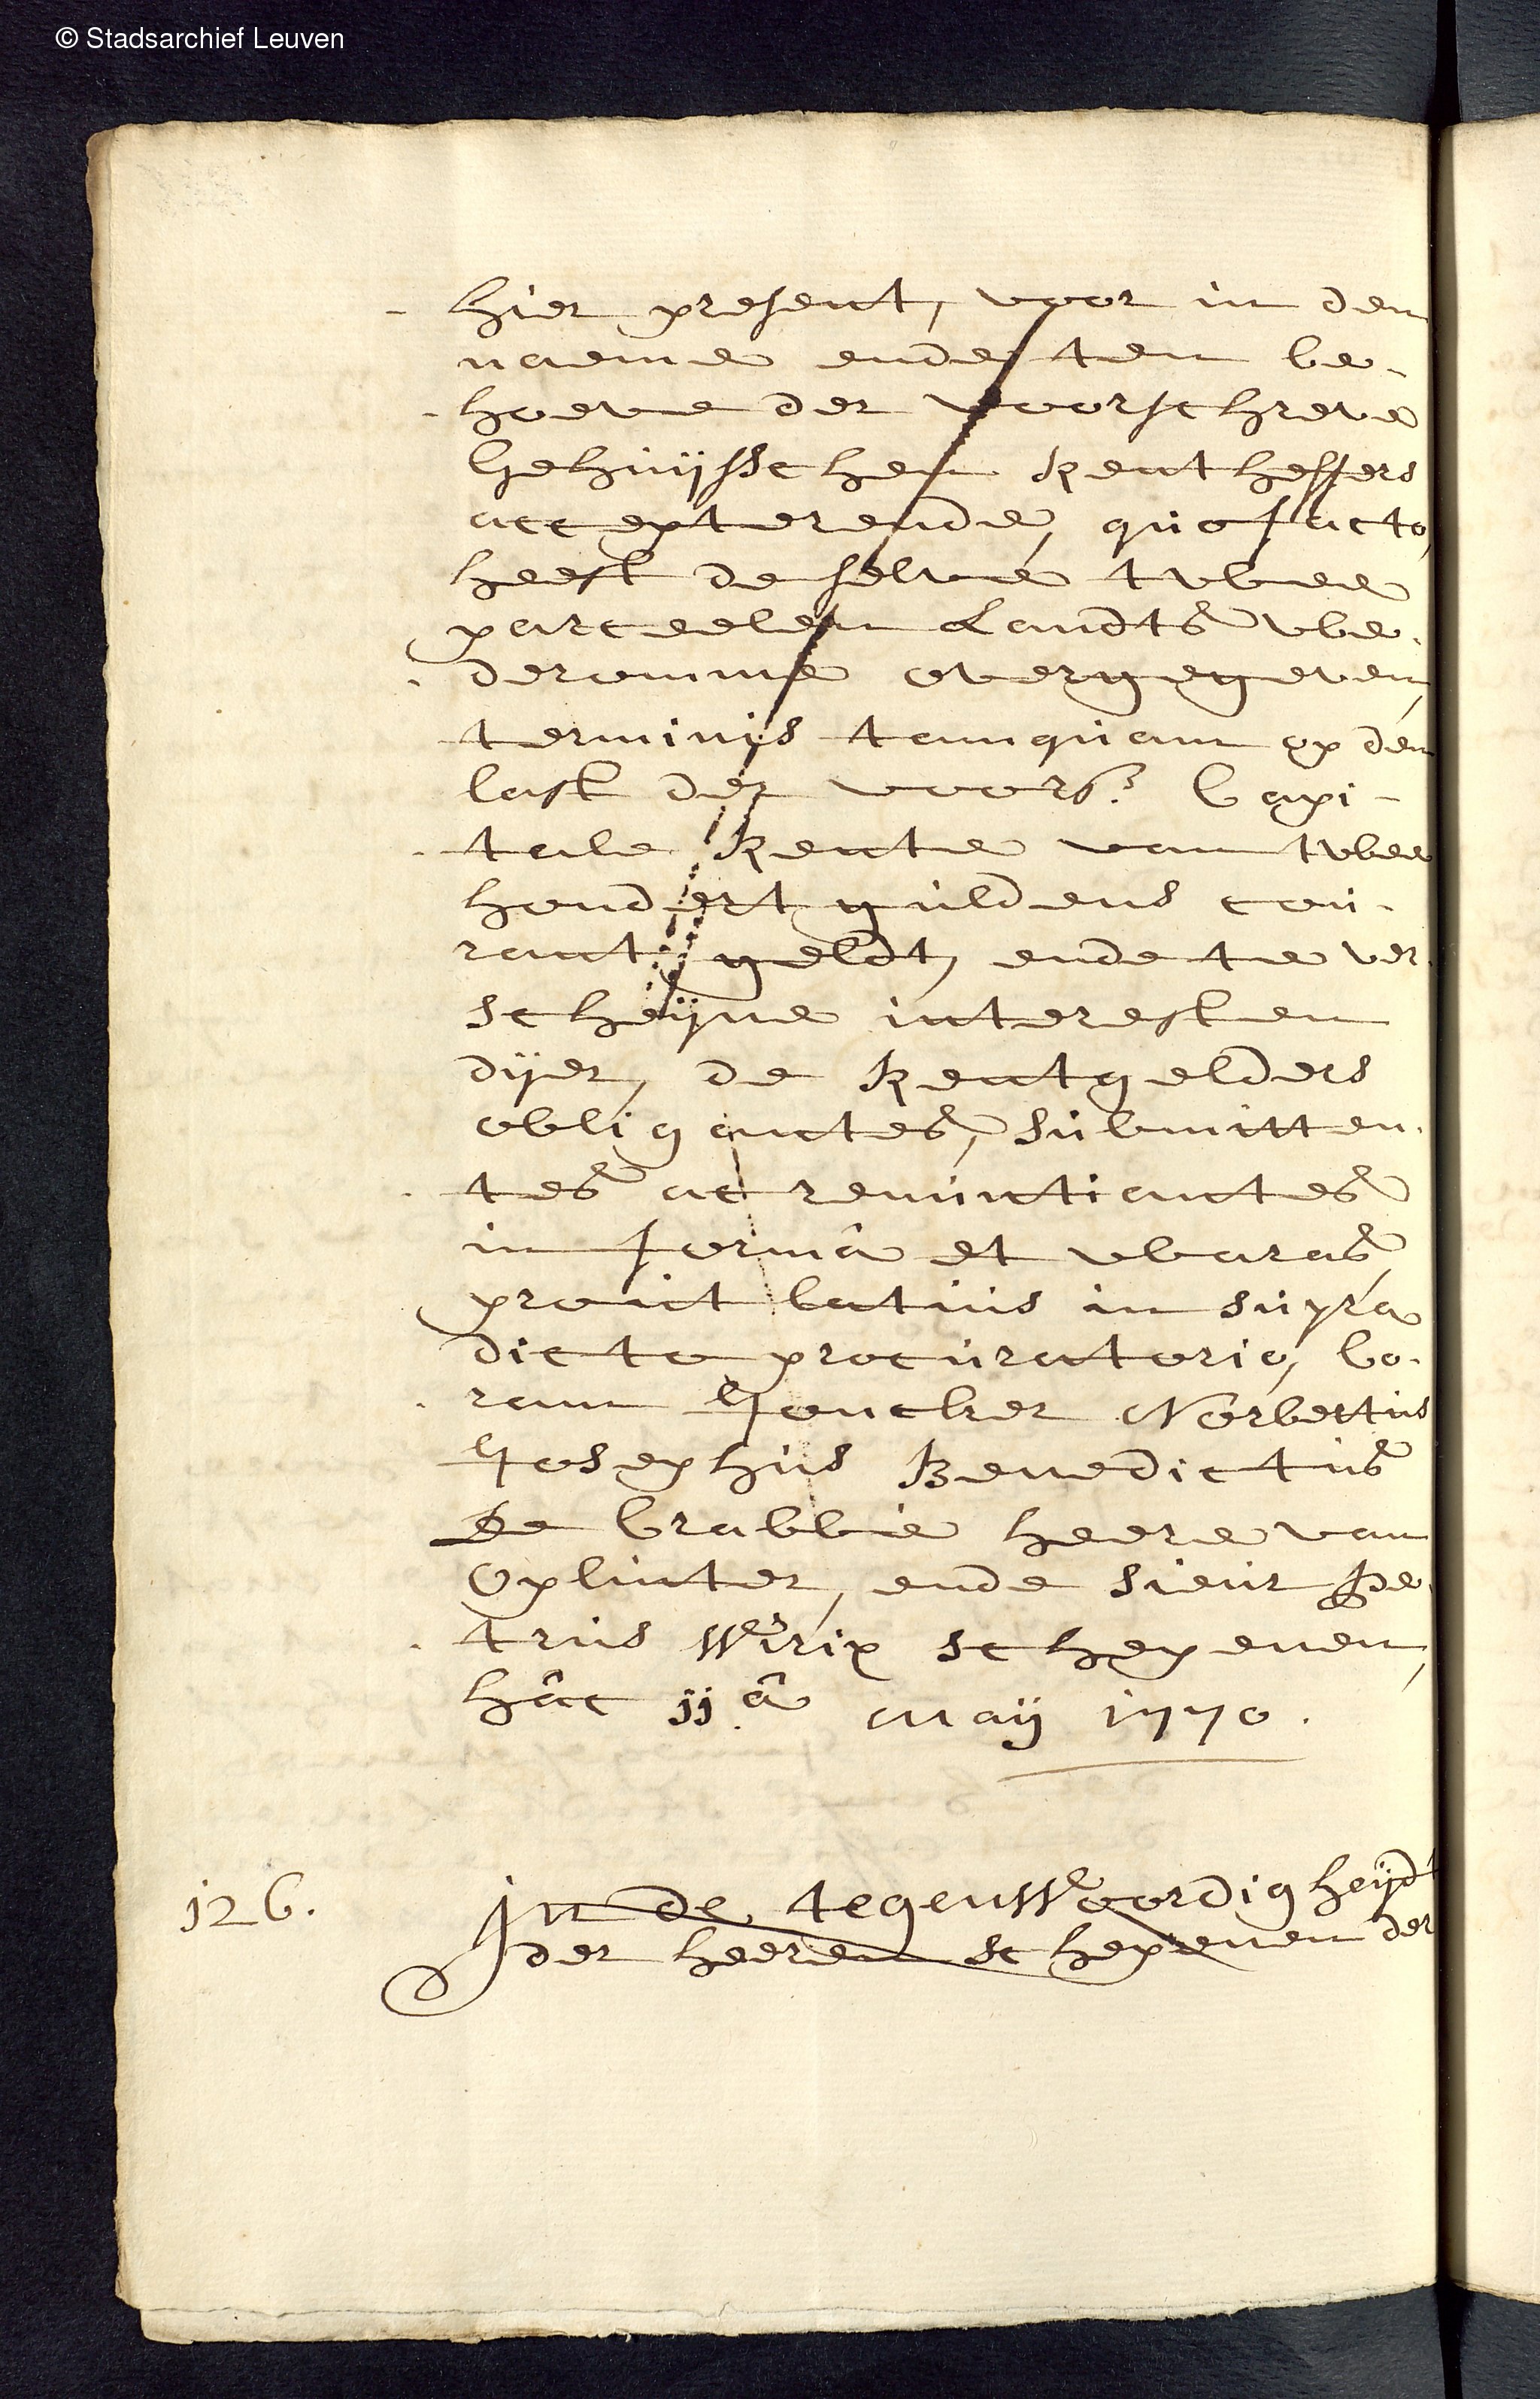 © Stadsarchief Leuven
- hier present, voor in den
naeme ende ten be-
- hoeve der voorschreve
Gehuijsschen Rentheffers
accepterende, quo facto,
heeft de selve twee
parceelen Landts we-
- deromme overgegeven,
terminis tamquam op den
last der voors. Capi-
- tale Rente van twee
hondert guldens cou-
rant geldt, ende te ver-
scheijne interesten
dijer, de Rentgelders
obligantes, submitten-
- tes ac renuntiantes
in formâ et waras,
prout latius in supra
dicto procuratorio, Co-
- ram Joncker Norbertus
Josephus Benedictus
De Crabbie heere van
Oplinter, ende sieur Pe-
- trus Wirix schepenen,
hâc jj.â Maij 1770.
126. In de tegenwoordigheijdt
der heeren schepenen der